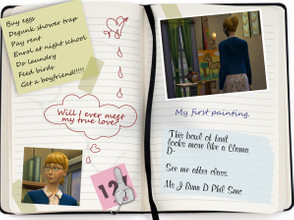 Buy eggs
Degunk shower trap
Pay rent
Enrol at night school
Do laundry
Feed birds
Get a boyfriend!!!!
Will I ever meet
my true love?
1?!
My first painting.
This bowl of fruit
looks more like a llama
D-
See me after class.
Ms J Bunn D Phil Sims